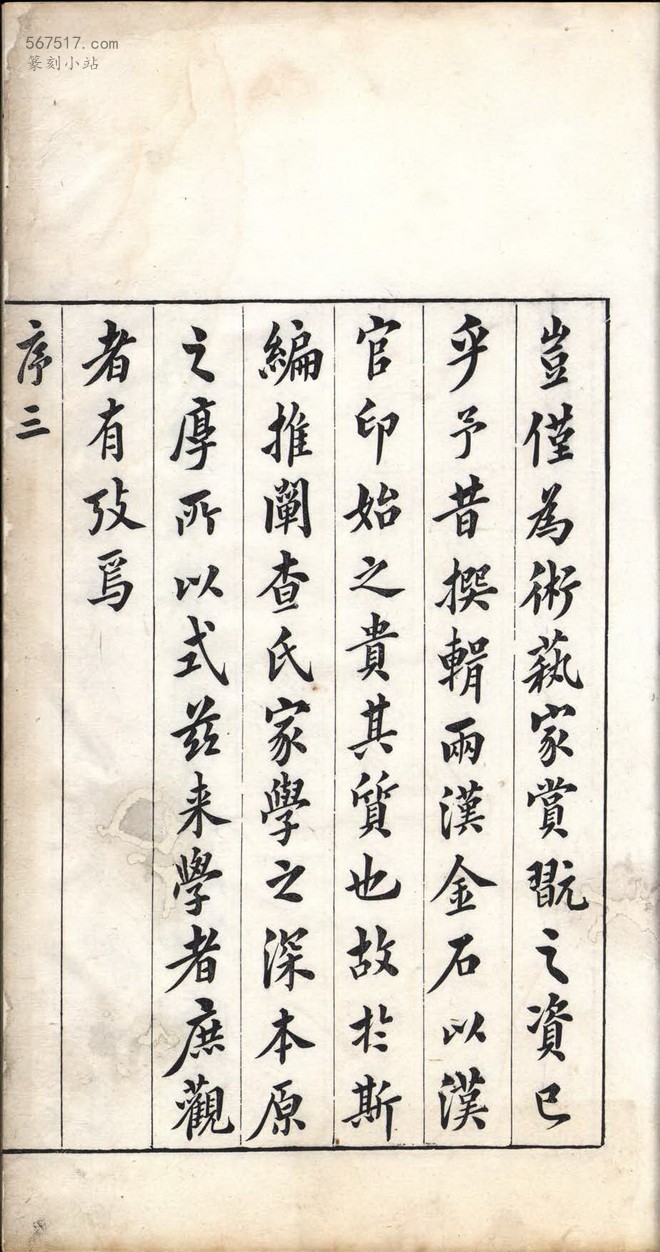 567517.com
篆刻小站
豈僅為術藝家賞翫之資已
乎予昔撰輯兩漢金石以漢
官印始之貴其質也故於斯
編推闡查氏家學之深本原
之厚所以式茲来學者庶觀
者有攷焉
序三